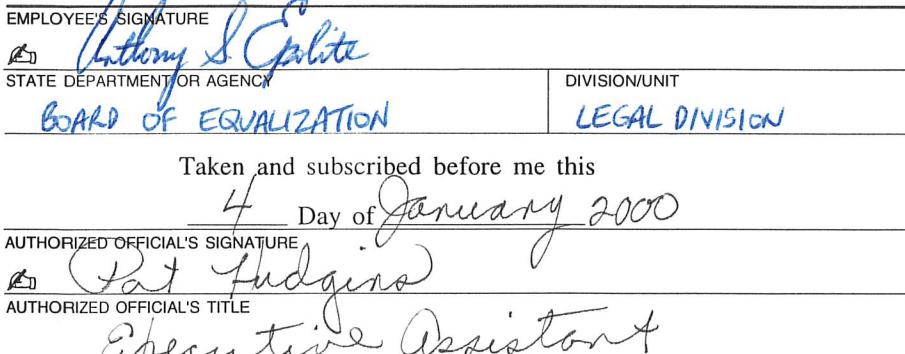 EMPLOYEE'S SIGNATURE
Anthony S. Epolite
STATE DEPARTMENT OR AGENCY DIVISION/UNIT
BOARD OF EQUALIZATION LEGAL DIVISION
Taken and subscribed before me this
4 Day of January 2000
AUTHORIZED OFFICIAL'S SIGNATURE
Pat Hudgins
AUTHORIZED OFFICIAL'S TITLE
Executive Assistant